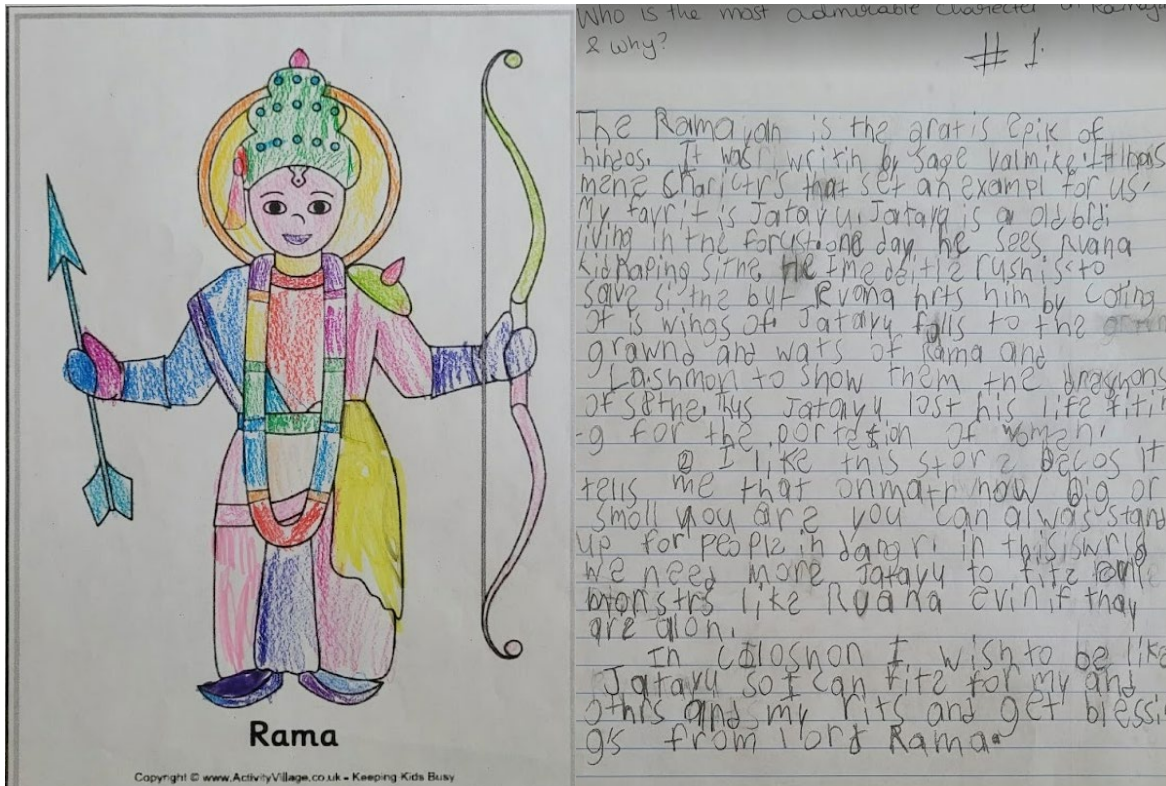 Rama
Copyright © www.ActivityVillage.co.uk - Keeping Kids Busy
Who is the most admirable character
& why?
# 1.
The Ramayan is the gratis Epik of
hindos. It was writin by sage Valmike. It has
mene charictrs that set an exampl for us.
My favrit is Jatayu. Jatayu is a old bird
living in the forust. one day he sees Rvana
kidnaping Sithe. He Imedeitle rush's to
save sithe but Rvana hrts him by coting
of is wings of. Jatayu falls to the
grawnd and wats of Rama and
Lashmon to show them the
of sethe. Thus Jatayu lost his life fiti
-g for the portetion of women.
I like this store becos it
tells me that onmatr how big or
small you are you can alwas stand
up for people in dangr. in this wrld
we need more Jatayu to fite
monstrs like Rvana evin if thay
are alon.
In coloshon I wish to be like
Jatayu so I can fite for my and
othrs and my rits and get blessi
g's from lord Rama.